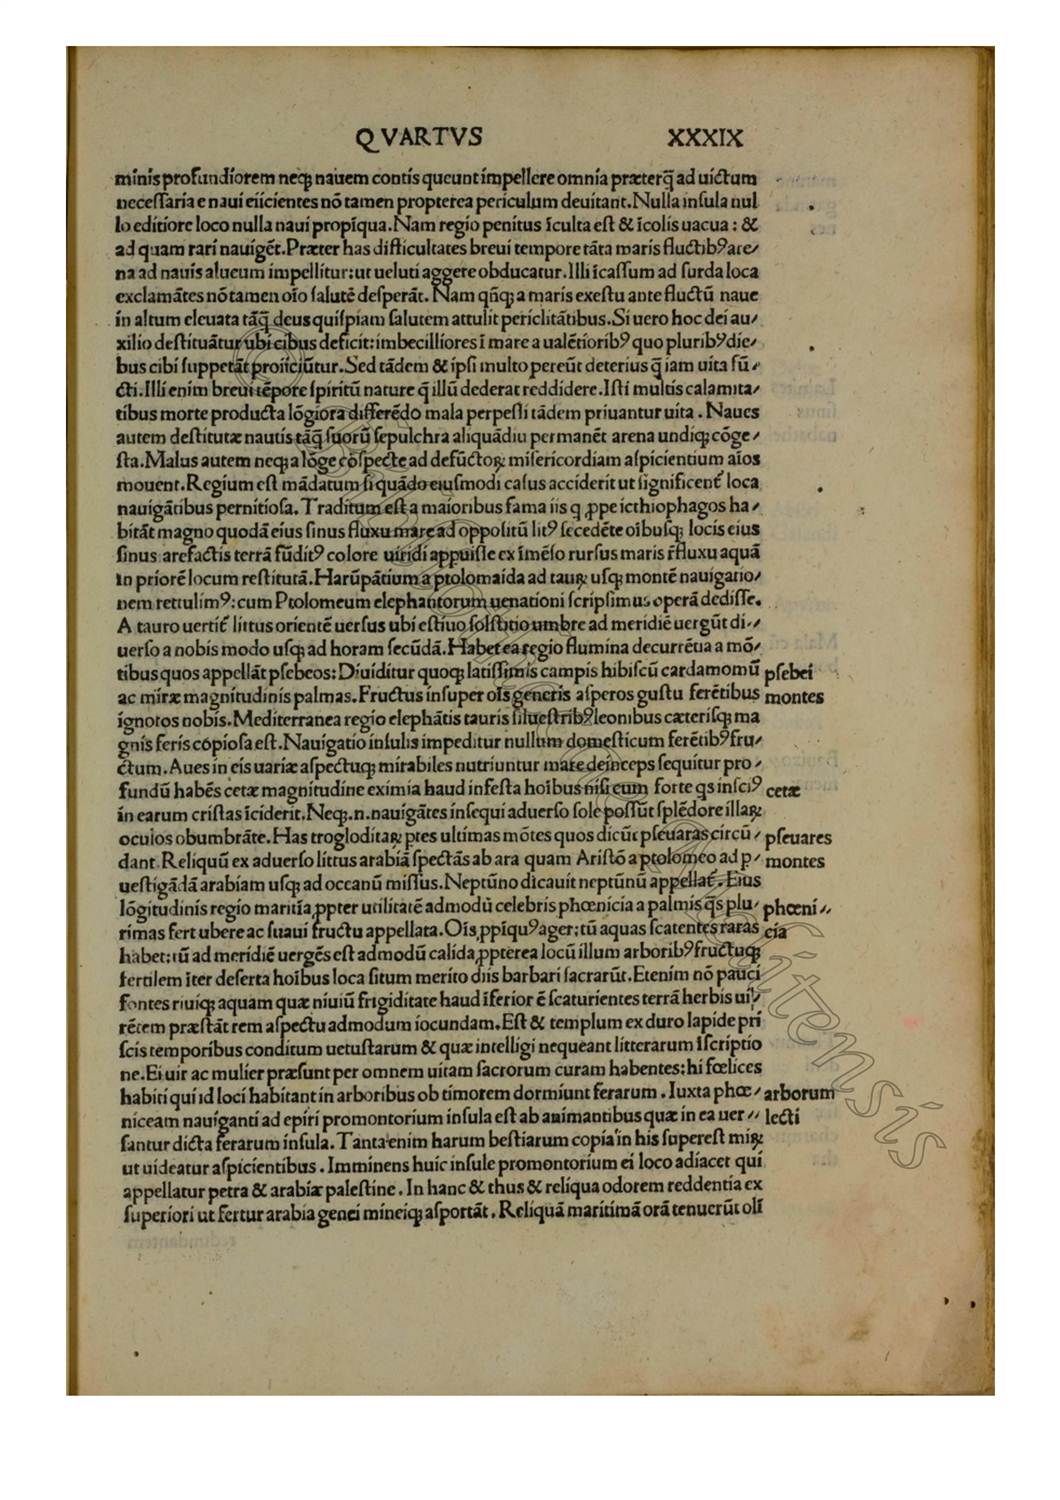 QVARTVS XXXIX
minis profundiorem neqꝫ nauem contis queunt impellere omnia præterq̃ ad uictum
necessaria e naui eiicientes nõ tamen propterea periculum deuitant. Nulla insula nul
lo editiore loco nulla naui propĩqua. Nam regio penitus ĩculta est & ĩcolis uacua: &
ad quam rari nauigẽt. Præter has difficultates breui tempore tãta maris fluctibꝰ are/
na ad nauis alueum impellitur: ut ueluti aggere obducatur. Illi ĩcassum ad surda loca
exclamãtes nõ tamen oĩo salutẽ desperãt. Nam qñqꝫ a maris exestu ante fluctũ naue
in altum eleuata tãq̃ deus quispiam salutem attulit periclitãtibus. Si uero hoc dei au/
xilio destituãtur ubi cibus deficit: imbecilliores ĩ mare a ualẽtioribꝰ quo pluribꝰ die/
bus cibi suppetãt proiiciũtur. Sed tãdem & ipsi multo pereũt deterius q̃ iam uita fũ/
cti. Illi enim breui tẽpore spiritũ nature q̃ illũ dederat reddidere. Isti multis calamita/
tibus morte producta lõgiora differẽdo mala perpessi tãdem priuantur uita. Naues
autem destitutæ nautis tãq̃ suorũ sepulchra aliquãdiu permanẽt arena undiqꝫ cõge/
sta. Malus autem neqꝫ a lõge cõspecte ad defũctoꝝ misericordiam aspicientium aĩos
mouent. Regium est mãdatum si quãdo eiusmodi casus acciderit ut significent̃ loca
nauigãtibus pernitiosa. Traditum est a maioribus fama iis q ꝓpe icthiophagos ha/
bitãt magno quodã eius sinus fluxu mare ad oppositũ litꝰ secedẽte oĩbusqꝫ locis eius
sinus arefactis terrã fũditꝰ colore uiridi appuisse ex ĩmẽso rursus maris r̃fluxu aquã
in priorẽ locum restitutã. Harũ pãtium a ptolomaida ad tauꝝ usqꝫ montẽ nauigatio/
nem rettulimꝰ: cum Ptolomeum elephantorum uenationi scripsimus operã dedisse.
A tauro uertit̃ littus orientẽ uersus ubi estiuo solstitio umbre ad meridiẽ uergũt di/
uerso a nobis modo usqꝫ ad horam secũdã. Habet ea regio flumina decurrẽtia a mõ/
tibus quos appellãt psebeos: Diuiditur quoqꝫ latissimis campis hibiscũ cardamomũ psebei
ac miræ magnitudinis palmas. Fructus insuper oĩs generis asperos gustu ferẽtibus montes
ignotos nobis. Mediterranea regio elephãtis tauris siluestribꝰ leonibus cæterisqꝫ ma
gnis feris copiosa est. Nauigatio insulis impeditur nullum domesticum ferẽtibꝰ fru/
ctum. Aues in eis uariæ aspectuqꝫ mirabiles nutriuntur mare deinceps sequitur pro/
fundũ habẽs cetæ magnitudine eximia haud infesta hoĩbus nisi cum forte q̃s insciꝰ cetæ
in earum cristas ĩciderit. Neqꝫ.n. nauigãtes insequi aduerso sole possũt splẽdore illaꝝ
oculos obumbrãte. Has trogloditaꝝ ꝑtes ultimas mõtes quos dicũt pseuaras circũ/ pseuares
dant. Reliquũ ex aduerso littus arabiã spectãs ab ara quam Aristõ a ptolomeo ad ꝑ/ montes
uestigãdã arabiam usqꝫ ad oceanũ missus. Neptũno dicauit neptũnũ appellat̃. Eius
lõgitudinis regio maritĩa ꝓpter utilitatẽ admodũ celebris phœnicia a palmis q̃s plu/ phœni//
rimas fert ubere ac suaui fructu appellata. Oĩs ꝓpiquꝰ ager: tũ aquas scatentes raras cia
habet: tũ ad meridiẽ uergẽs est admodũ calida ꝓpterea locũ illum arboribꝰ fructuqꝫ
fertilem ĩter deserta hoĩbus loca situm merito diis barbari sacrarũt. Etenim nõ pauci
fontes riuiqꝫ aquam quæ niuiũ frigiditate haud ĩferior ẽ scaturientes terrã herbis ui/
rẽtem præstãt rem aspectu admodum iocundam. Est & templum ex duro lapide pri
scis temporibus conditum uetustarum & quæ intelligi nequeant litterarum ĩscriptio
ne. Ei uir ac mulier præsunt per omnem uitam sacrorum curam habentes: hi fœlices
habiti qui id loci habitant in arboribus ob timorem dormiunt ferarum. Iuxta phœ/ arborum
niceam nauiganti ad epiri promontorium insula est ab animantibus quæ in ea uer// lecti
santur dicta ferarum insula. Tanta enim harum bestiarum copia in his superest miꝝ
ut uideatur aspicientibus. Imminens huic insule promontorium ei loco adiacet qui
appellatur petra & arabiæ palestine. In hanc & thus & reliqua odorem reddentia ex
superiori ut fertur arabia genei mineiqꝫ asportãt. Reliquã maritimã orã tenuerũt oli